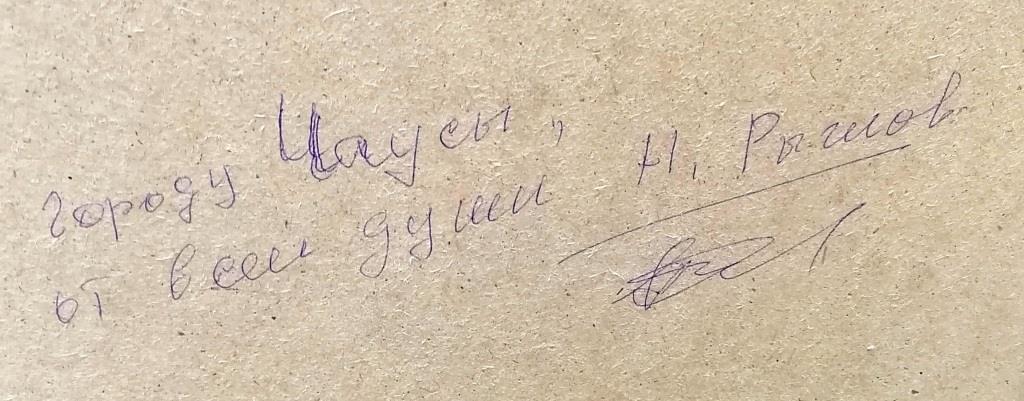 городу Чаусы,
от всей души
Н. Рыжлов